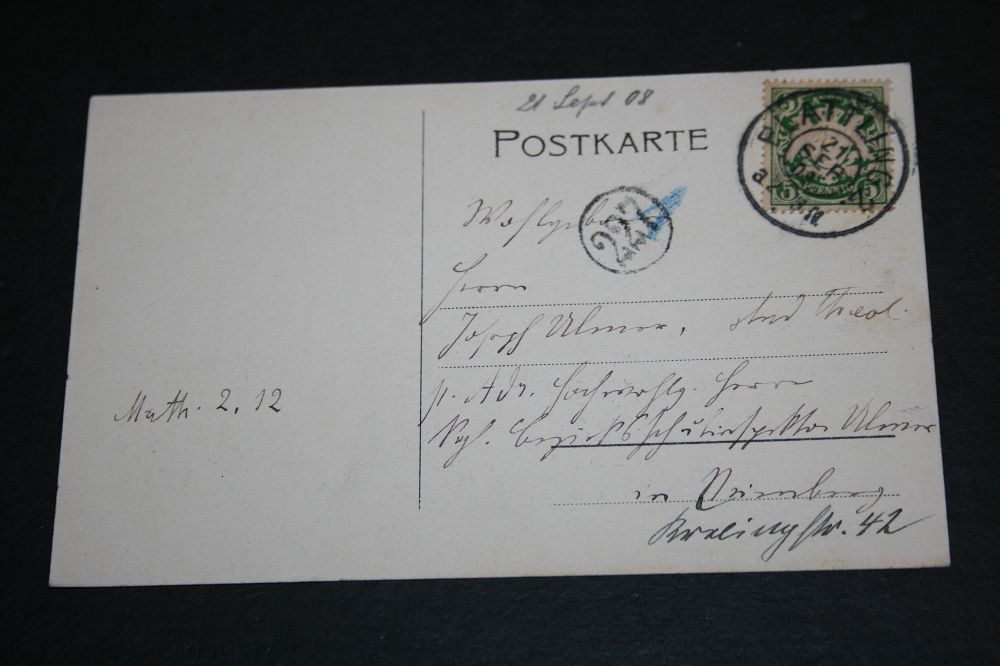 21 Sept 08
POSTKARTE
PLATTLING
21
SEP.
5 5
222
Herrn
Joseph Ulmer, stud theol.
p. Adr. Hochwohlg. Herrn
Kgl. Bezirksschulinspektor Ulmer
in Nürnberg
str. 42
Math. 2, 12